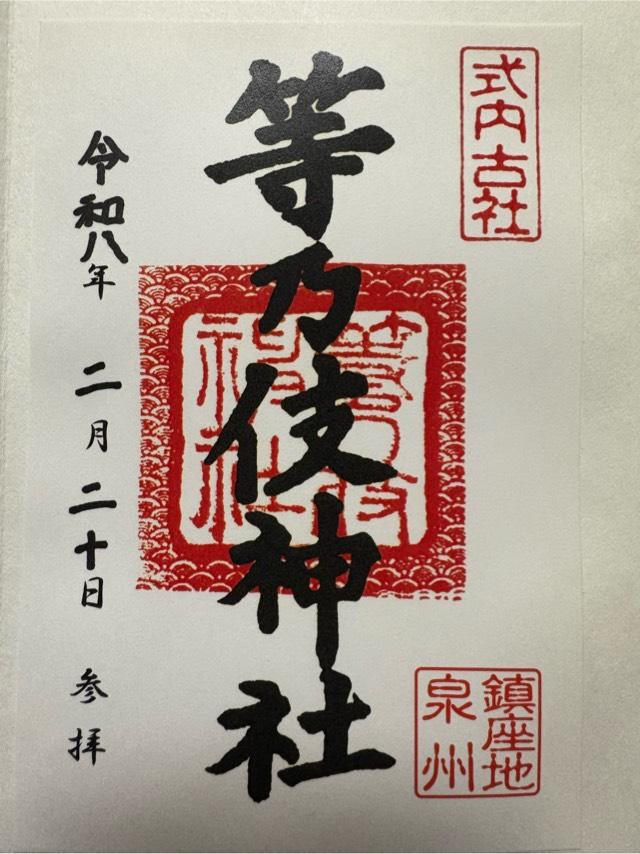 式内古社
等乃伎神社
等乃伎
神社
鎮座地
泉州
令和八年 二月二十日 参拝